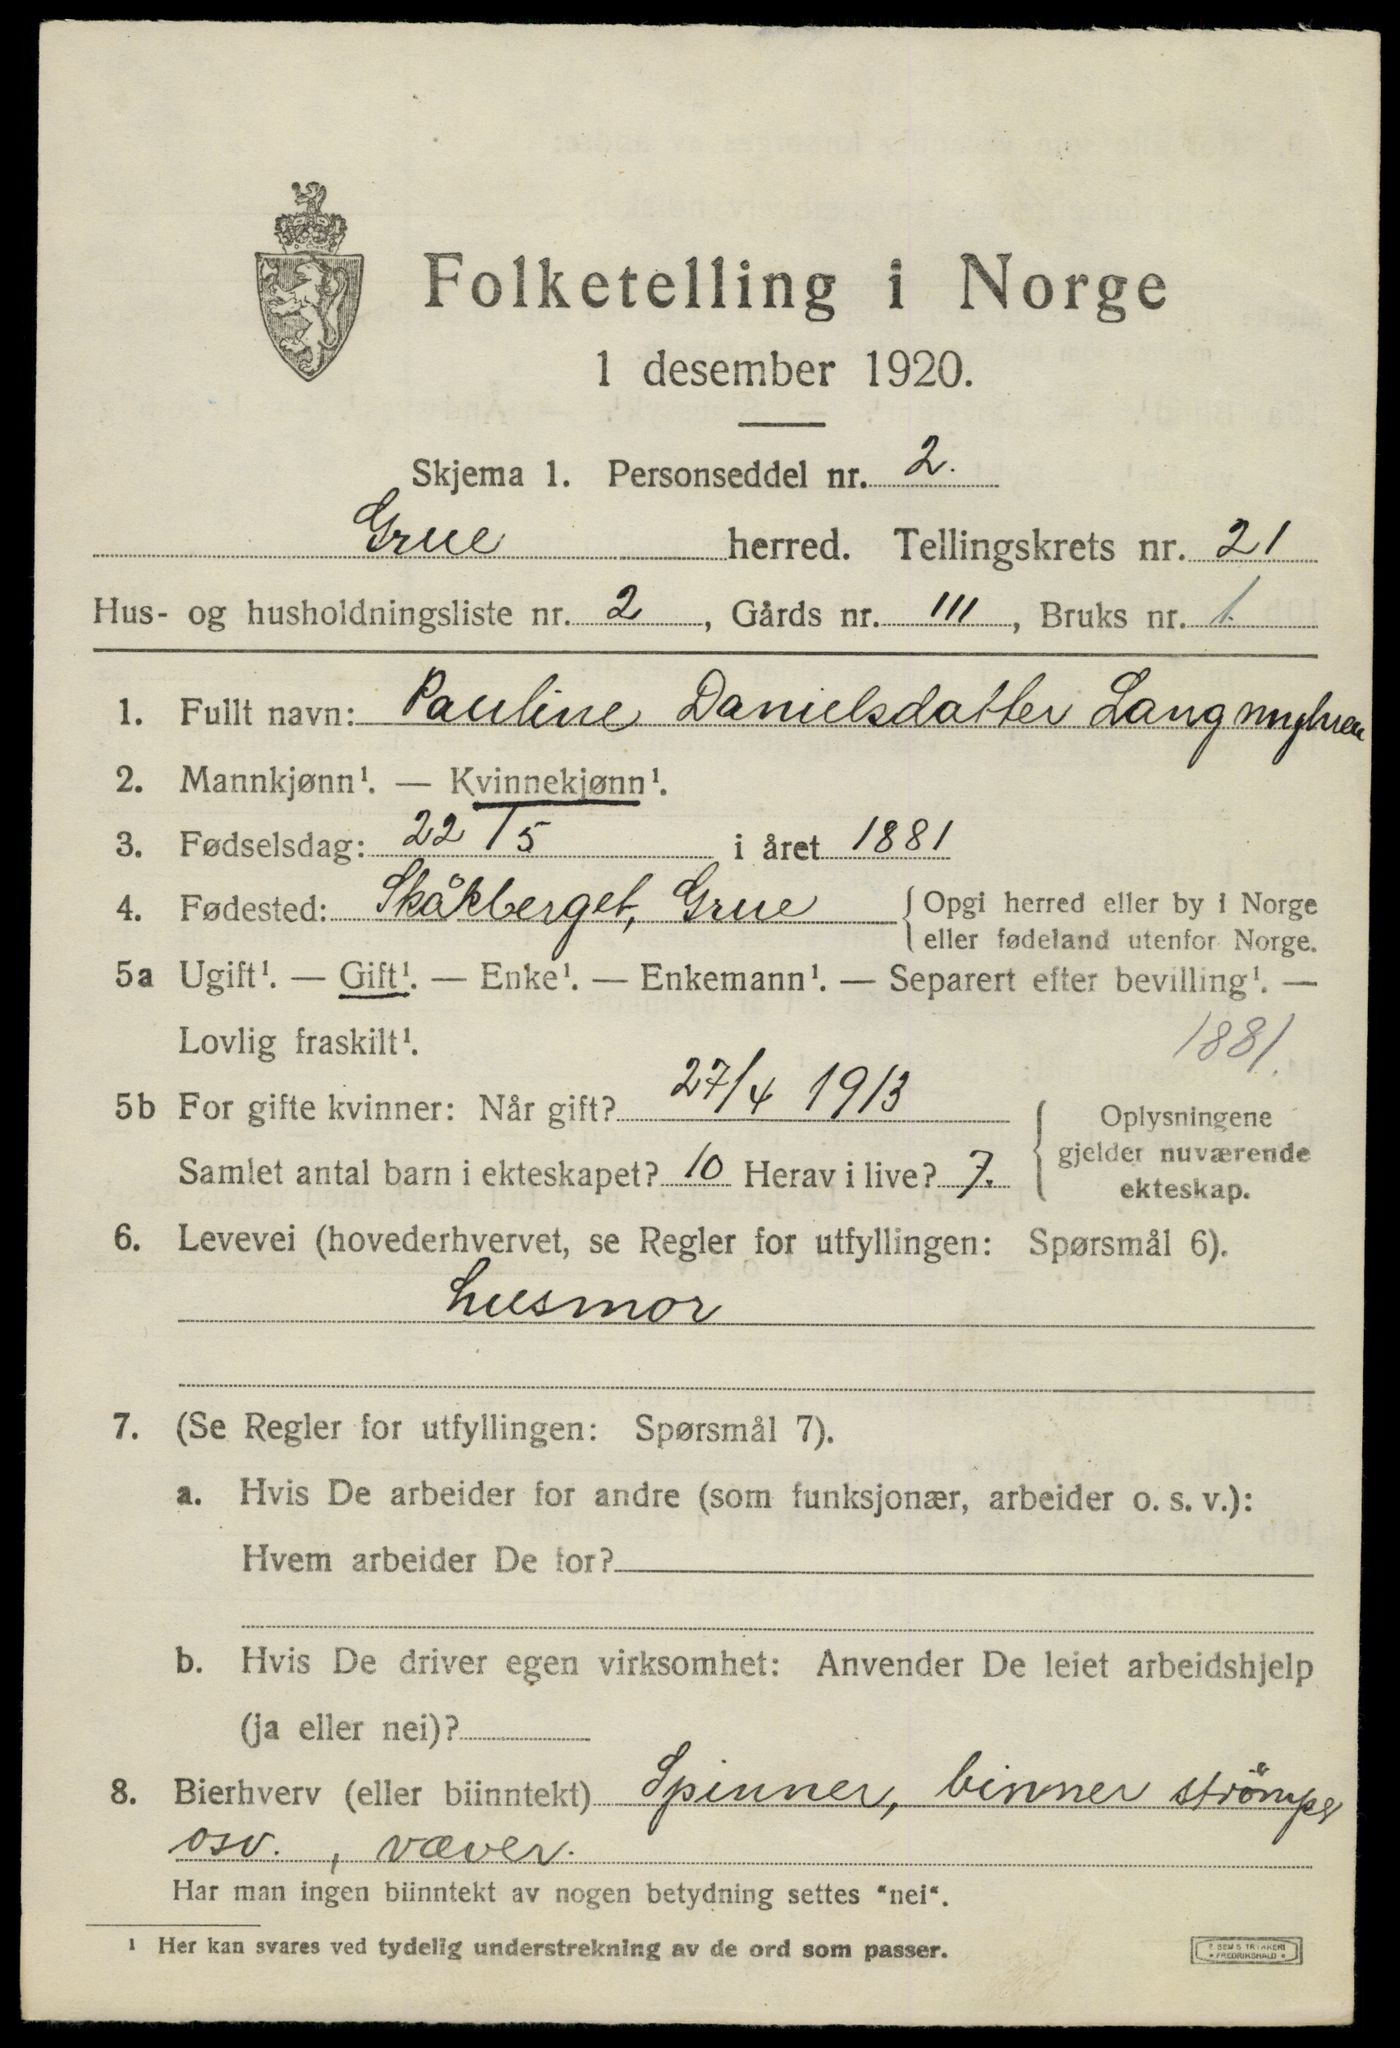 Folketelling i Norge
1 desember 1920.
Skjema 1. Personseddel nr. 2.
Grue herred. Tellingskrets nr. 21
Hus- og husholdningsliste nr. 2, Gårds nr. 111, Bruks nr. 1.
1. Fullt navn: Pauline Danielsdatter Langmyhren
2. Mannkjønn¹. — Kvinnekjønn¹.
3. Fødselsdag: 22/5 i året 1881
4. Fødested: Skåkberget, Grue { Opgi herred eller by i Norge
eller fødeland utenfor Norge.
5a Ugift¹. — Gift¹. — Enke¹. — Enkemann¹. — Separert efter bevilling¹. —
Lovlig fraskilt¹. 1881.
5b For gifte kvinner: Når gift? 27/4 1913
Samlet antal barn i ekteskapet? 10 Herav i live? 7.
Oplysningene
gjelder nuværende
ekteskap.
6. Levevei (hovederhvervet, se Regler for utfyllingen: Spørsmål 6).
husmor
7. (Se Regler for utfyllingen: Spørsmål 7).
a. Hvis De arbeider for andre (som funksjonær, arbeider o. s. v.):
Hvem arbeider De for?
b. Hvis De driver egen virksomhet: Anvender De leiet arbeidshjelp
(ja eller nei)?
8. Bierhverv (eller biinntekt) Spinner, binner strömper
osv., væver.
Har man ingen biinntekt av nogen betydning settes "nei".
¹ Her kan svares ved tydelig understrekning av de ord som passer.
E. SEM'S TRYKKERI
FREDRIKSHALD